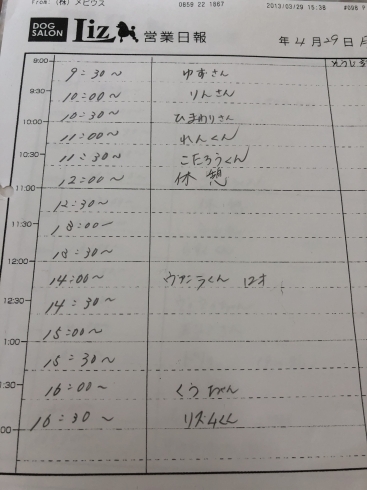 From: (株) メビウス 0859 22 1867 2013/03/29 15:38 #098
DOG SALON Liz 営業日報 年 4月29日
9:00
9:30~ ゆずさん
9:30
10:00~ りんさん
10:00
10:30~ ひまわりさん
11:00~ れんくん
10:30
11:30~ こたろうくん
11:00
12:00~ 休憩
11:30
12:30~
12:00
13:00~
13:30~
14:00~ 12才
12:30
14:30~
15:00~
1:00
15:30~
1:30
16:00~ くうちゃん
16:30~ リズムくん